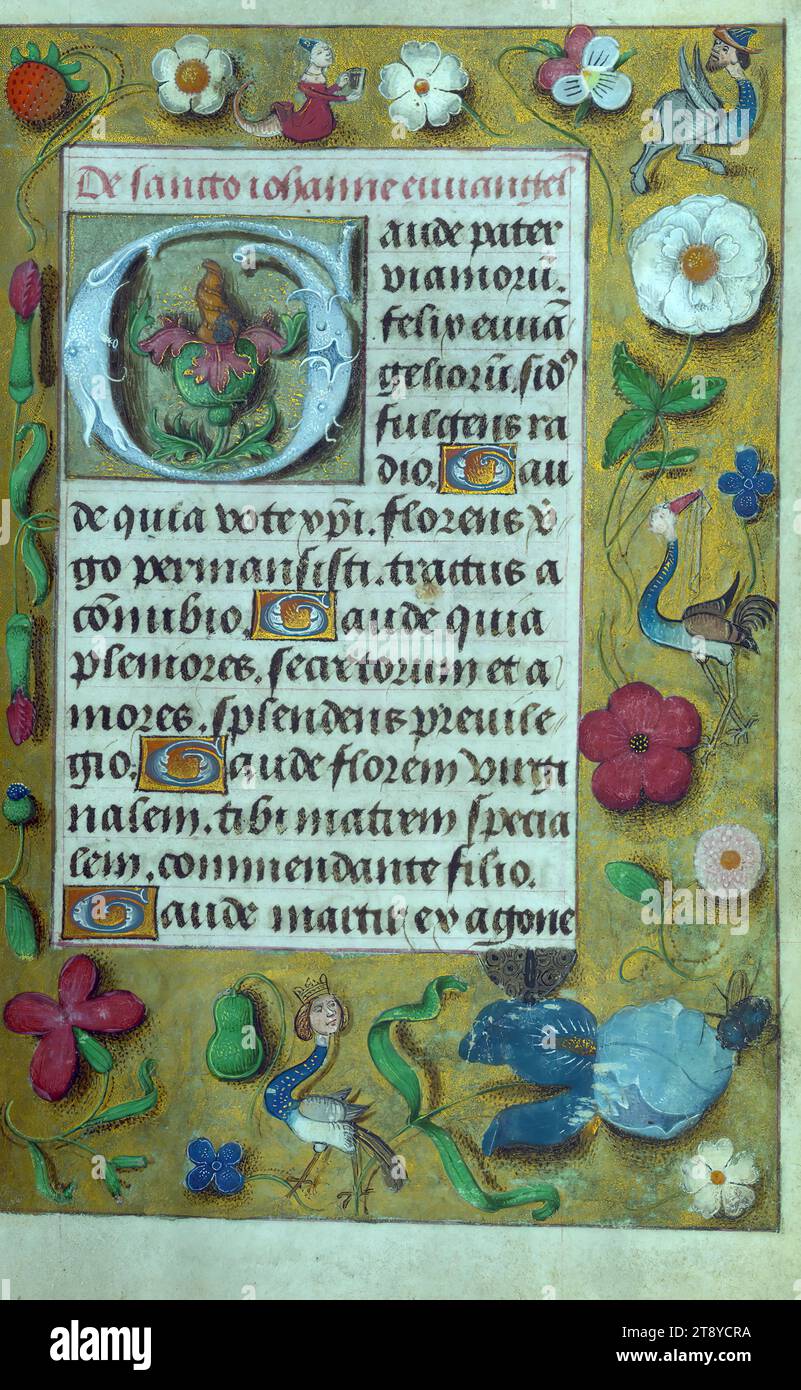 De sancto iohanne euuangel
Gaude pater
viamorū.
felix euuā
geliorū. sidꝰ
fulgens ra
dio. Gau
de quia uote xp̄i. florens v̄
go permansisti. tractus a
connubio. Gaude quia
plemores. secretorum et a
mores. splendens preuile
gio. Gaude florem virgi
nalem. tibi matrem specia
lem. commendante filio.
Gaude martir ex agone
alamy
Image ID: 2T8YCRA
www.alamy.com